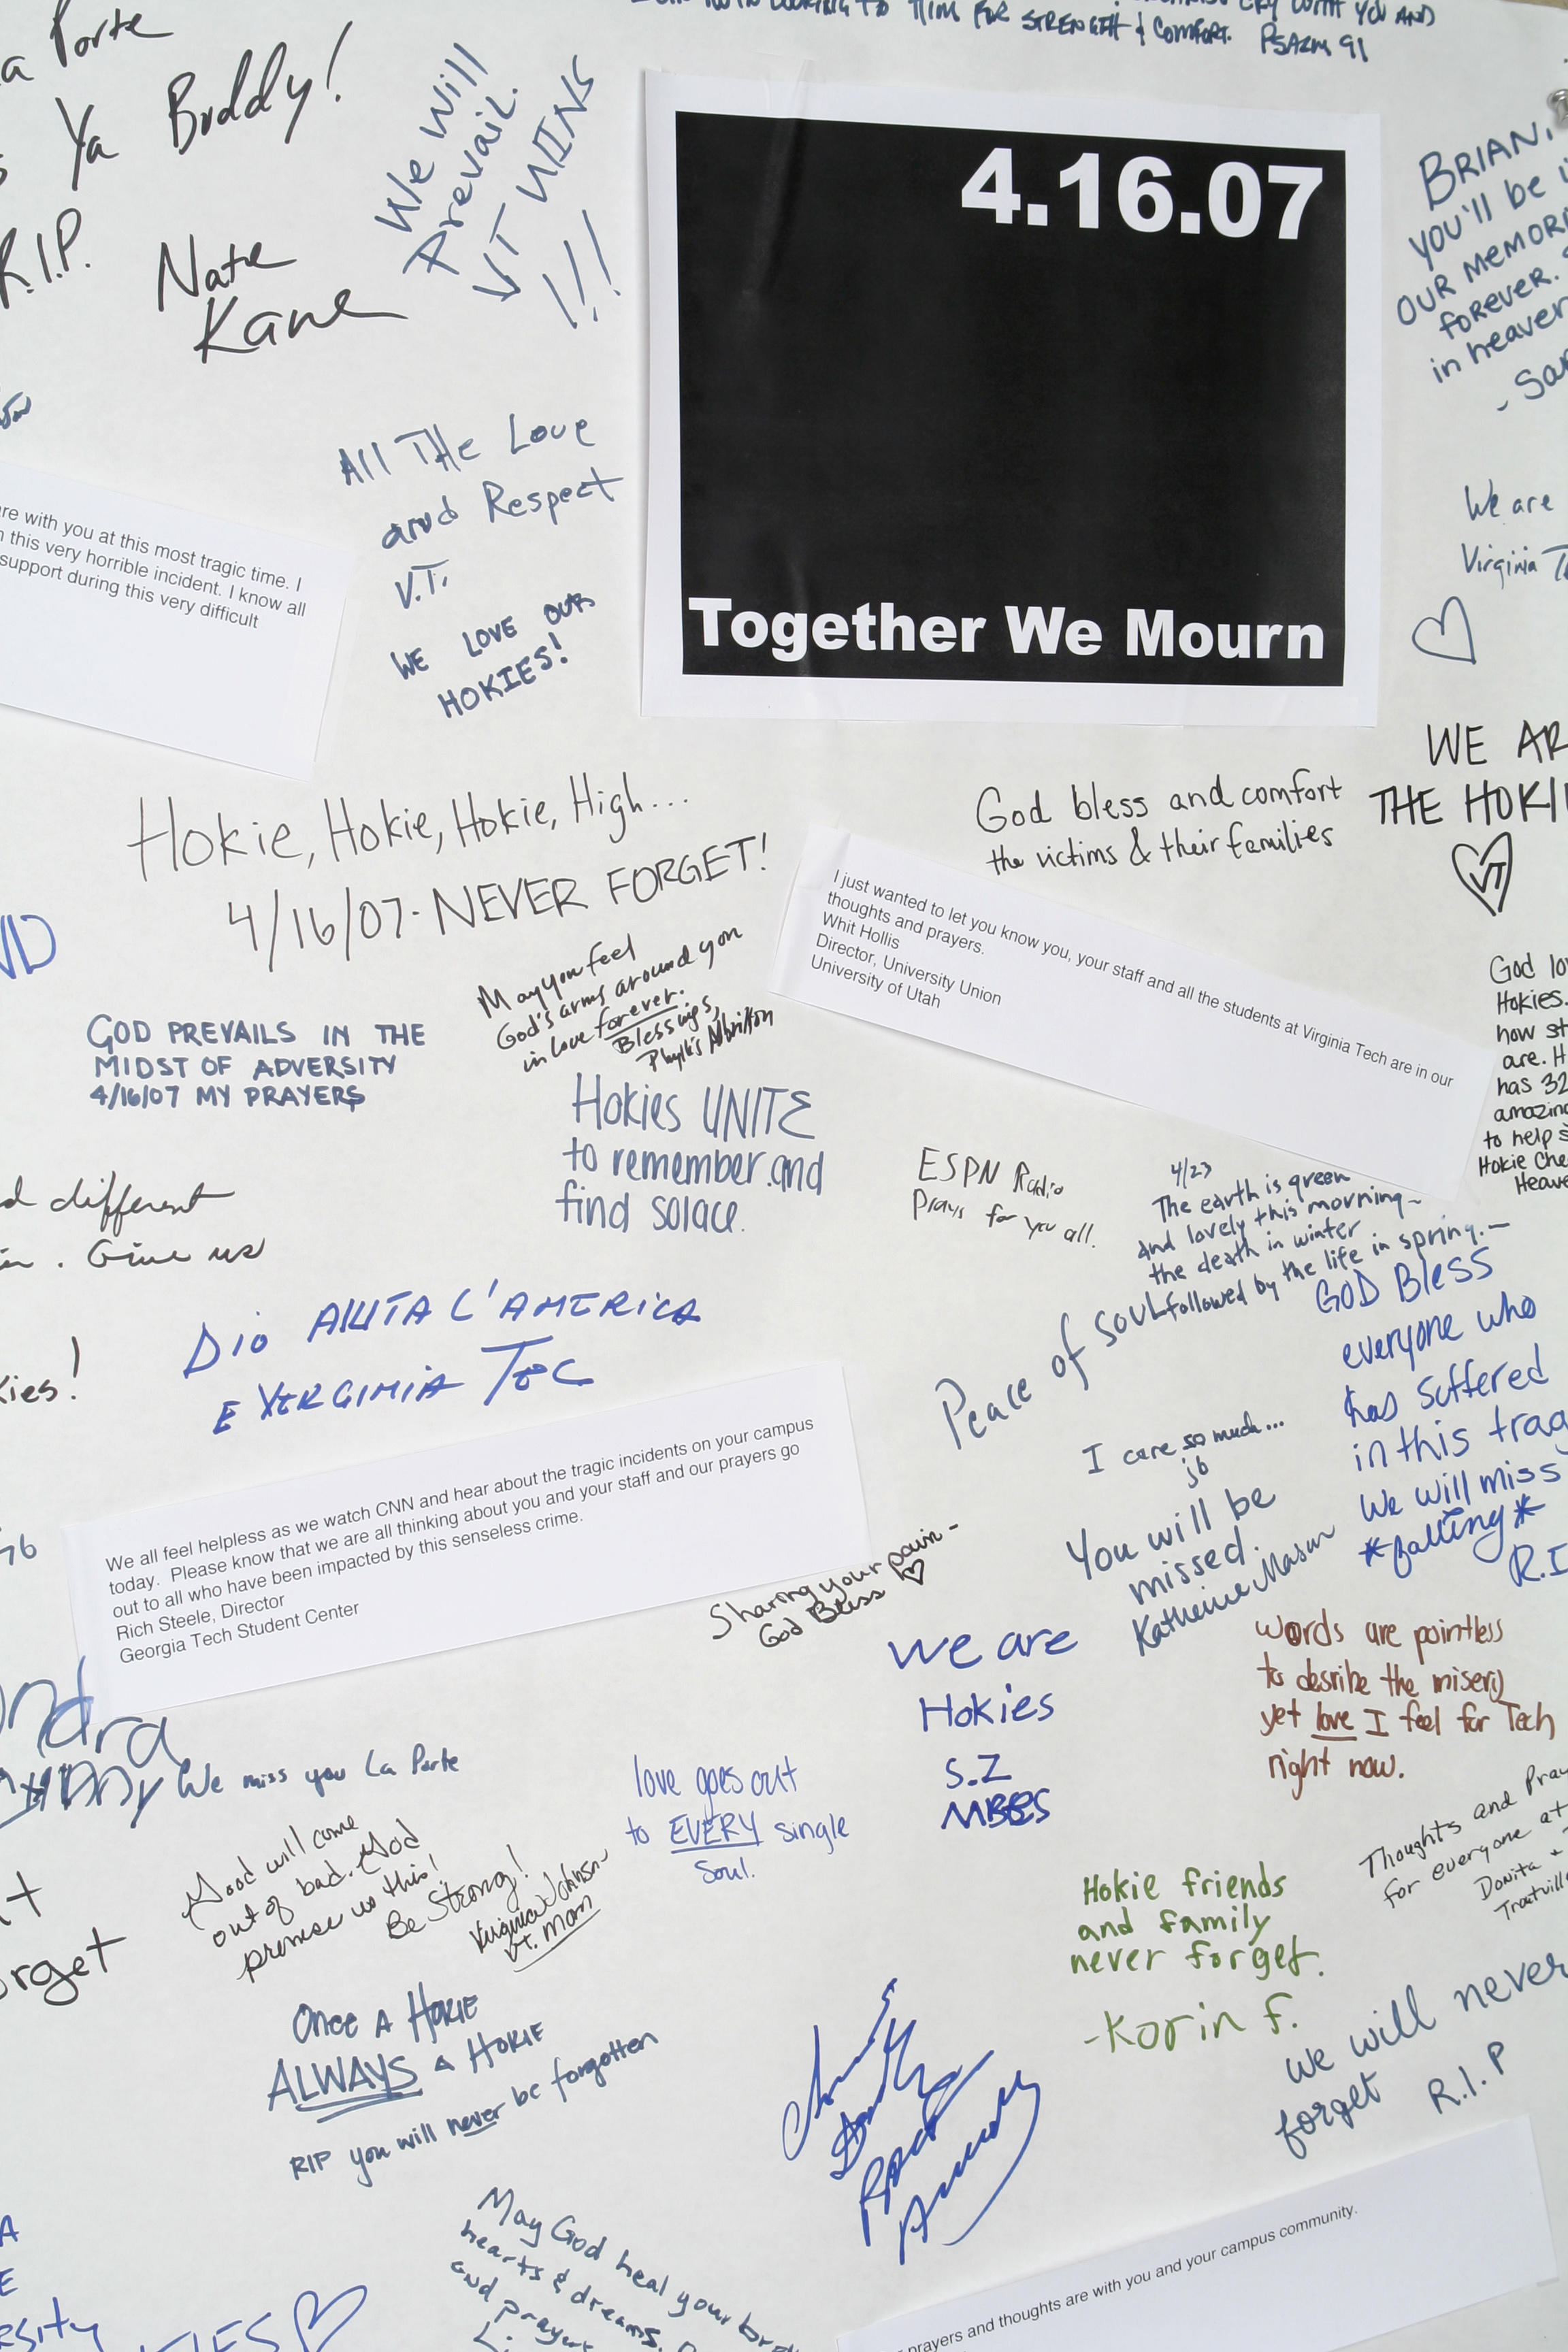 LOOKING TO HIM FOR STRENGTH & COMFORT. PSALM 91
CRY WITH YOU AND
a Porte
Ya Buddy!
R.I.P.
Nate
Kane
We will
Prevail.
VT WINS
!!!
4.16.07
Together We Mourn
BRIAN,
YOU'll be i
OUR MEMORI
FOREVER.
in heaven
- Sar
All The Love
and Respect
V.T.
WE LOVE OUR
HOKIES!
re with you at this most tragic time. I
this very horrible incident. I know all
support during this very difficult
We are
Virginia T
WE AR
THE HOKI
VT
Hokie, Hokie, Hokie, High...
4/16/07 - NEVER FORGET!
God bless and comfort
the victims & their families
I just wanted to let you know you, your staff and all the students at Virginia Tech are in our
thoughts and prayers.
Whit Hollis
Director, University Union
University of Utah
God lo
Hokies.
how st
are. H
has 32
amazin
to help
Hokie Che
Heave
May you feel
God's arms around you
in love forever.
Blessings,
Phyllis Albritton
GOD PREVAILS IN THE
MIDST OF ADVERSITY
4/16/07 MY PRAYERS
Hokies UNITE
to remember and
find solace.
ESPN Radio
Prays for you all.
4/23
The earth is green
and lovely this morning -
the death in winter
followed by the life in spring. -
d different
. Give us
DIO AIUTA L'AMERICA
E VERGINIA TEC
kies!
Peace of Soul
GOD Bless
everyone who
has suffered
in this trag
We will miss
*falling*
R.I
I care so much...
jb
You will be
missed.
Katherine Mason
We all feel helpless as we watch CNN and hear about the tragic incidents on your campus
today. Please know that we are all thinking about you and your staff and our prayers go
out to all who have been impacted by this senseless crime.
Rich Steele, Director
Georgia Tech Student Center
Sharing your pain -
God Bless
We are
Hokies
S.Z
MBBS
words are pointless
to desribe the misery
yet love I feel for Tech
right now.
ndra
We miss you La Porte
love goes out
to EVERY single
soul.
Good will come
out of bad. God
promise us this!
Be Strong!
Virginia Johnson
VT. MOM
Thoughts and Pray
for everyone at
Donita &
Troutville
Hokie friends
and family
never forget.
- Korin F.
rget
Once A HOKIE
ALWAYS A HOKIE
RIP you will never be forgotten
we will never
forget R.I.P
May God heal your bro
hearts & dreams.
and prayer
prayers and thoughts are with you and your campus community.
rsity